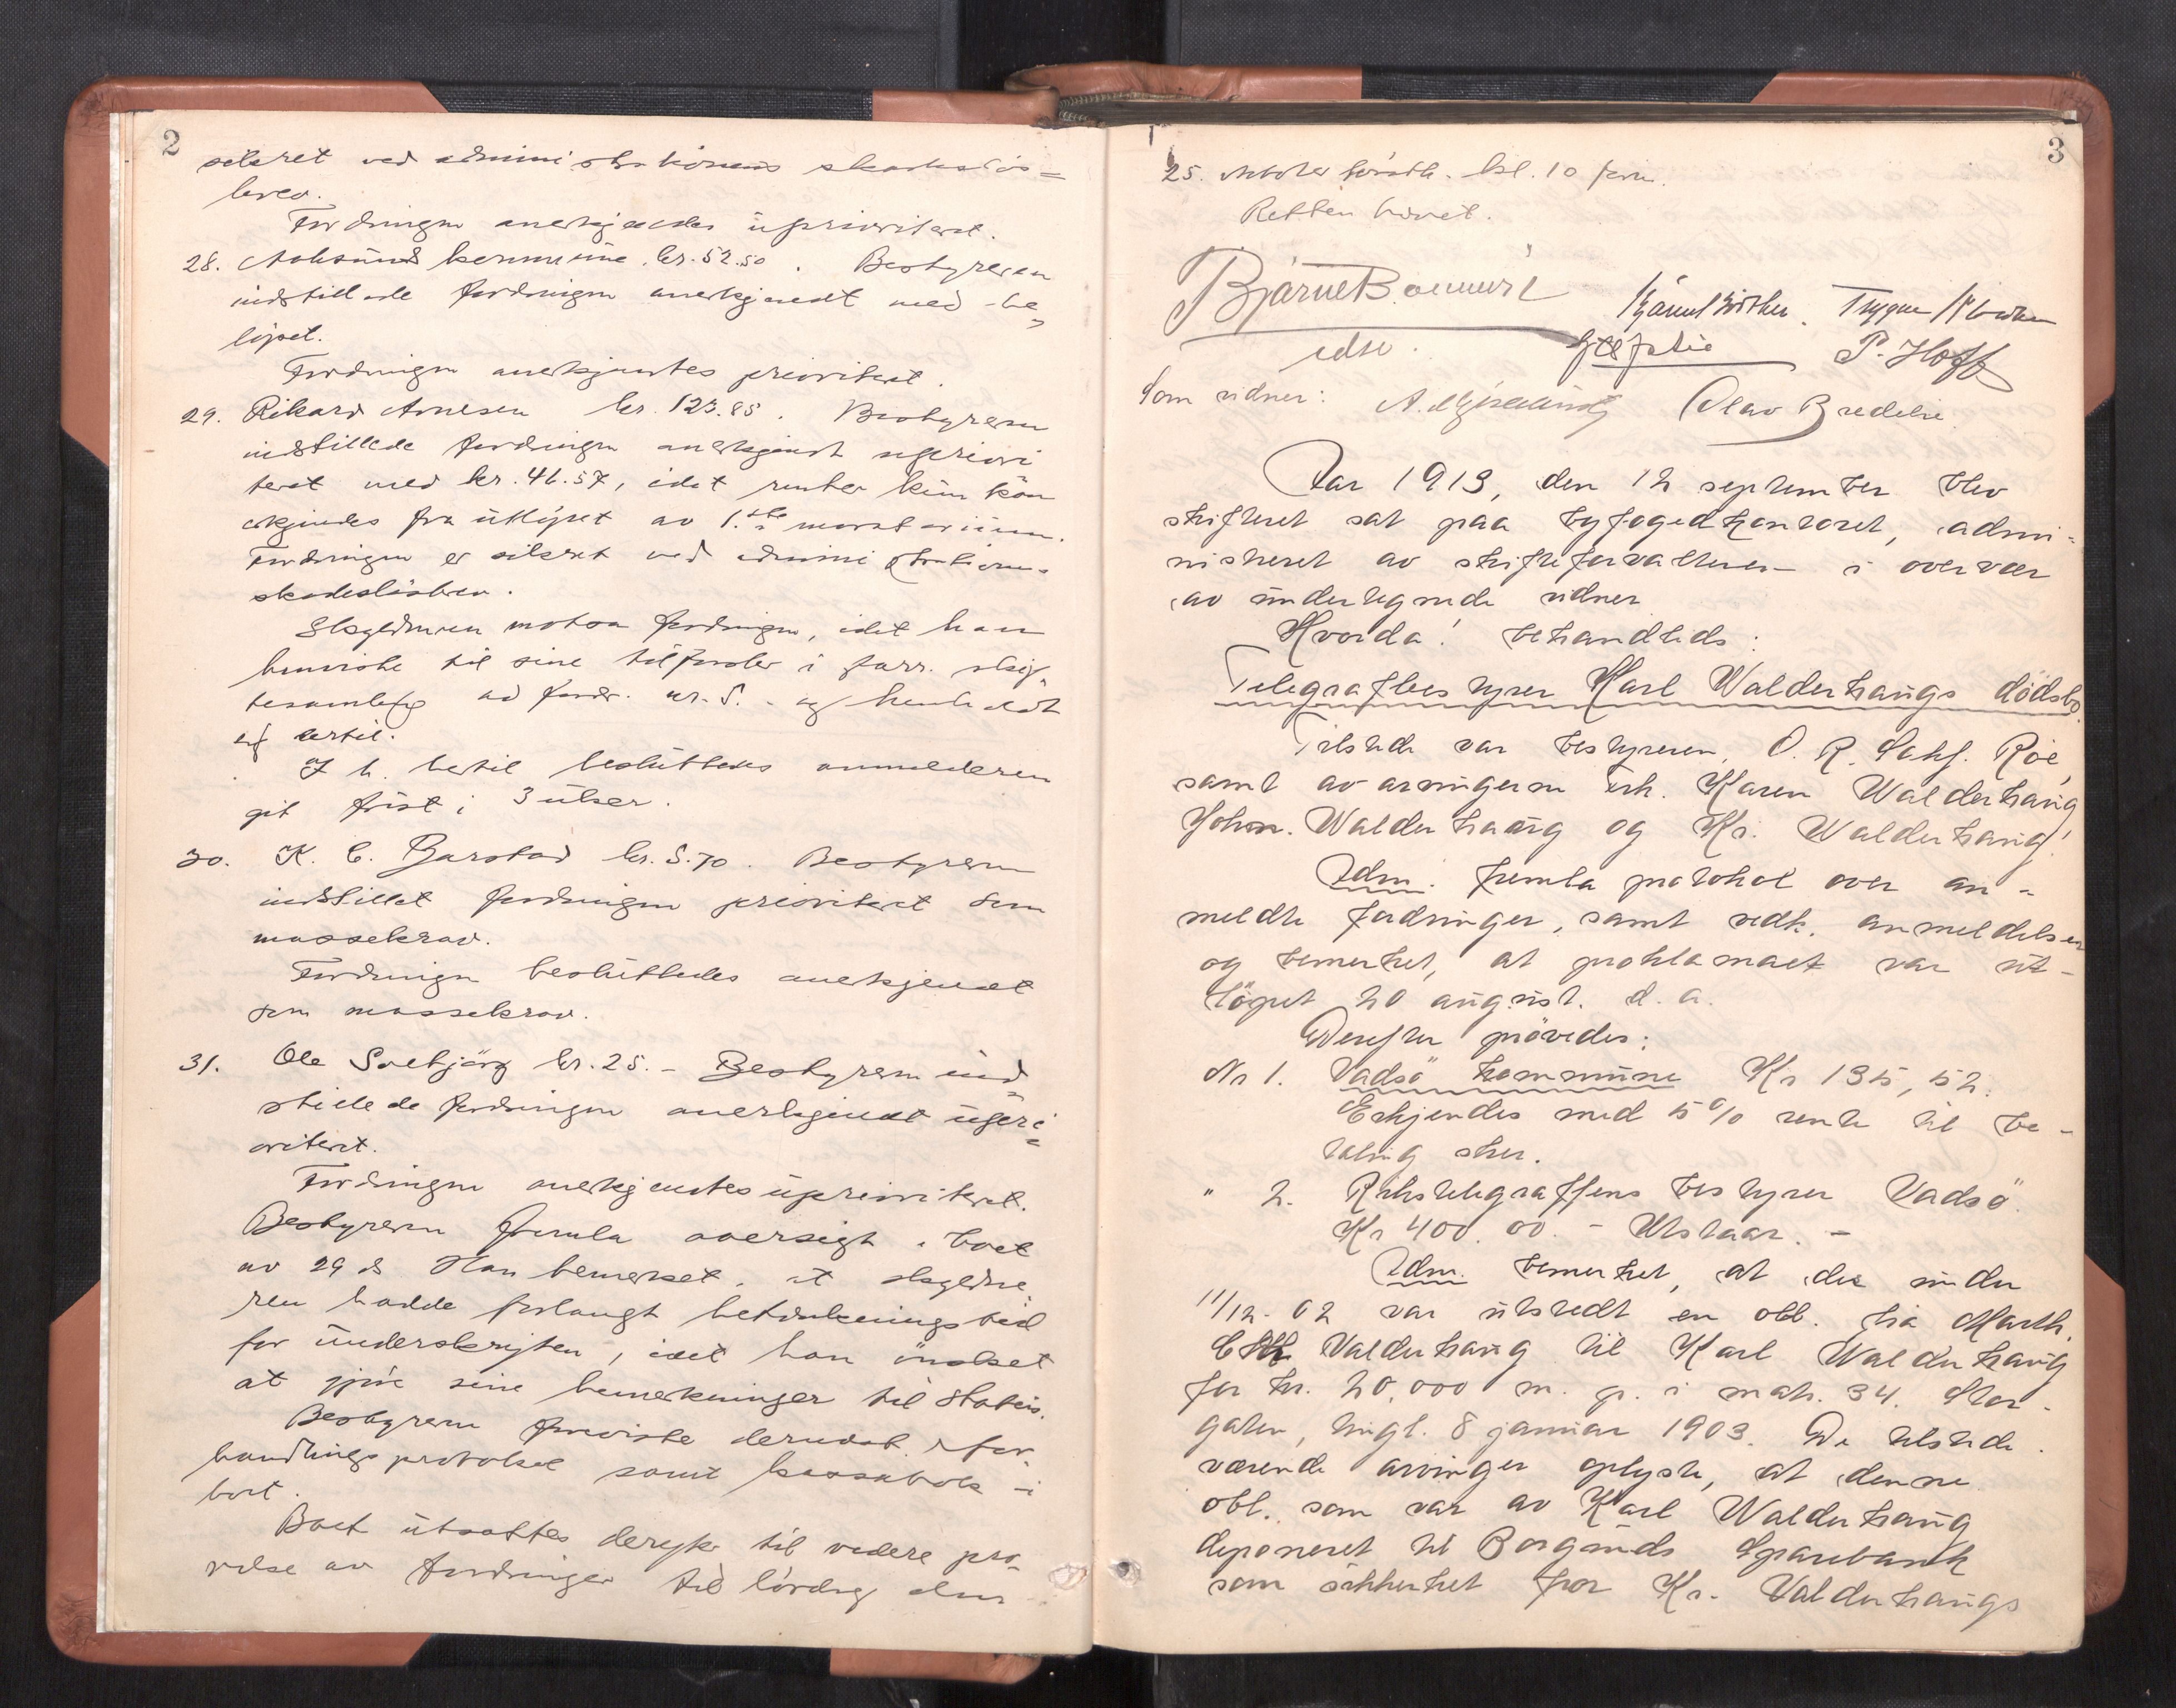 2
sikret ved administrationens skadesløs=
brev.
Fordringen anerkjendes uprioritert.
28. kommune kr. 52.50. Bestyreren
indstillede fordringen anerkjendt med be-
løpet.
Fordringen anerkjentes prioritert.
29. Rikard Arnesen kr. 123.85. Bestyreren
indstillede fordringen anerkjendt upriori
tert med kr. 46.57, idet renter kun kan
erkjendes fra utløpet av 1.ste moratorium.
Fordringen er sikret ved administrations-
skadesløsbrev.
Skyldneren motsa fordringen, idet han
henviste til sine tilførsler i forr. skif-
tesamling ad fordr. nr. 5. og henholdt
sig dertil.
I h. hertil besluttedes anmelderen
git frist i 3 uker.
30. K. C. Barstad kr. 5.70. Bestyreren
indstillet fordringen prioritert som
massekrav.
Fordringen besluttedes anerkjendt
som massekrav.
31. Ole Solbjørg kr. 25.- Bestyreren ind
stillede fordringen anerkjendt upri=
oritert.
Fordringen anerkjentes uprioritert.
Bestyreren fremla oversigt i boet
av 29 ds Han bemerket, at skyldne
ren hadde forlangt betænkningstid
for underskriften, idet han ønsket
at gjøre sine bemerkninger til status.
Bestyreren foreviste derudat for-
handlingsprotokol samt kassabok i
boet.
Boet utsattes derefter til videre prø-
velse av fordringer til lørdag den
3
25. oktober førstk. kl. 10 form.
Retten hævet.
Bjarne
edsv. P. Hoff
Som vidner: Olav Bredelie
Aar 1913, den 12 september blev
skifteret sat paa byfogedkontoret, admi-
nistreret av skifteforvalteren i overvær
av undertegnede vidner
Hvorda! behandleds:
Telegrafbestyrer Karl Walderhaugs dødsbo.
Tilstede var bestyreren, O. R. Sakf. Roe,
samt av arvingerne Frk. Karen Walderhaug,
Johan. Walderhaug og Kr. Walderhaug!
Adm. fremla protokol over an-
meldte fordringer, samt vedk. anmeldelser
og bemerket, at proklamaet var ut-
løpet 20 august. d. a.
Derefter prøvedes:
Nr 1. Vadsø kommune Kr 135,52.
Erkjendes med 5% rente til be-
taling sker.
" 2. Rikstelegraffens bestyrer Vadsø.
Kr 400.00. - Utstaar. -
Adm. bemerket, at der under
11/12-02 var utstedt en obl. fra Marth.
Valderhaug til Karl Walderhaug
for kr. 20,000 m. p. i matr. 34. Stor-
gaten, tingl. 8 januar 1903. De tilstede
værende arvinger oplyste, at denne
obl. som var av Karl Walderhaug
deponeret til Borgunds Sparebank
som sikkerhet for Kr. Valderhaugs